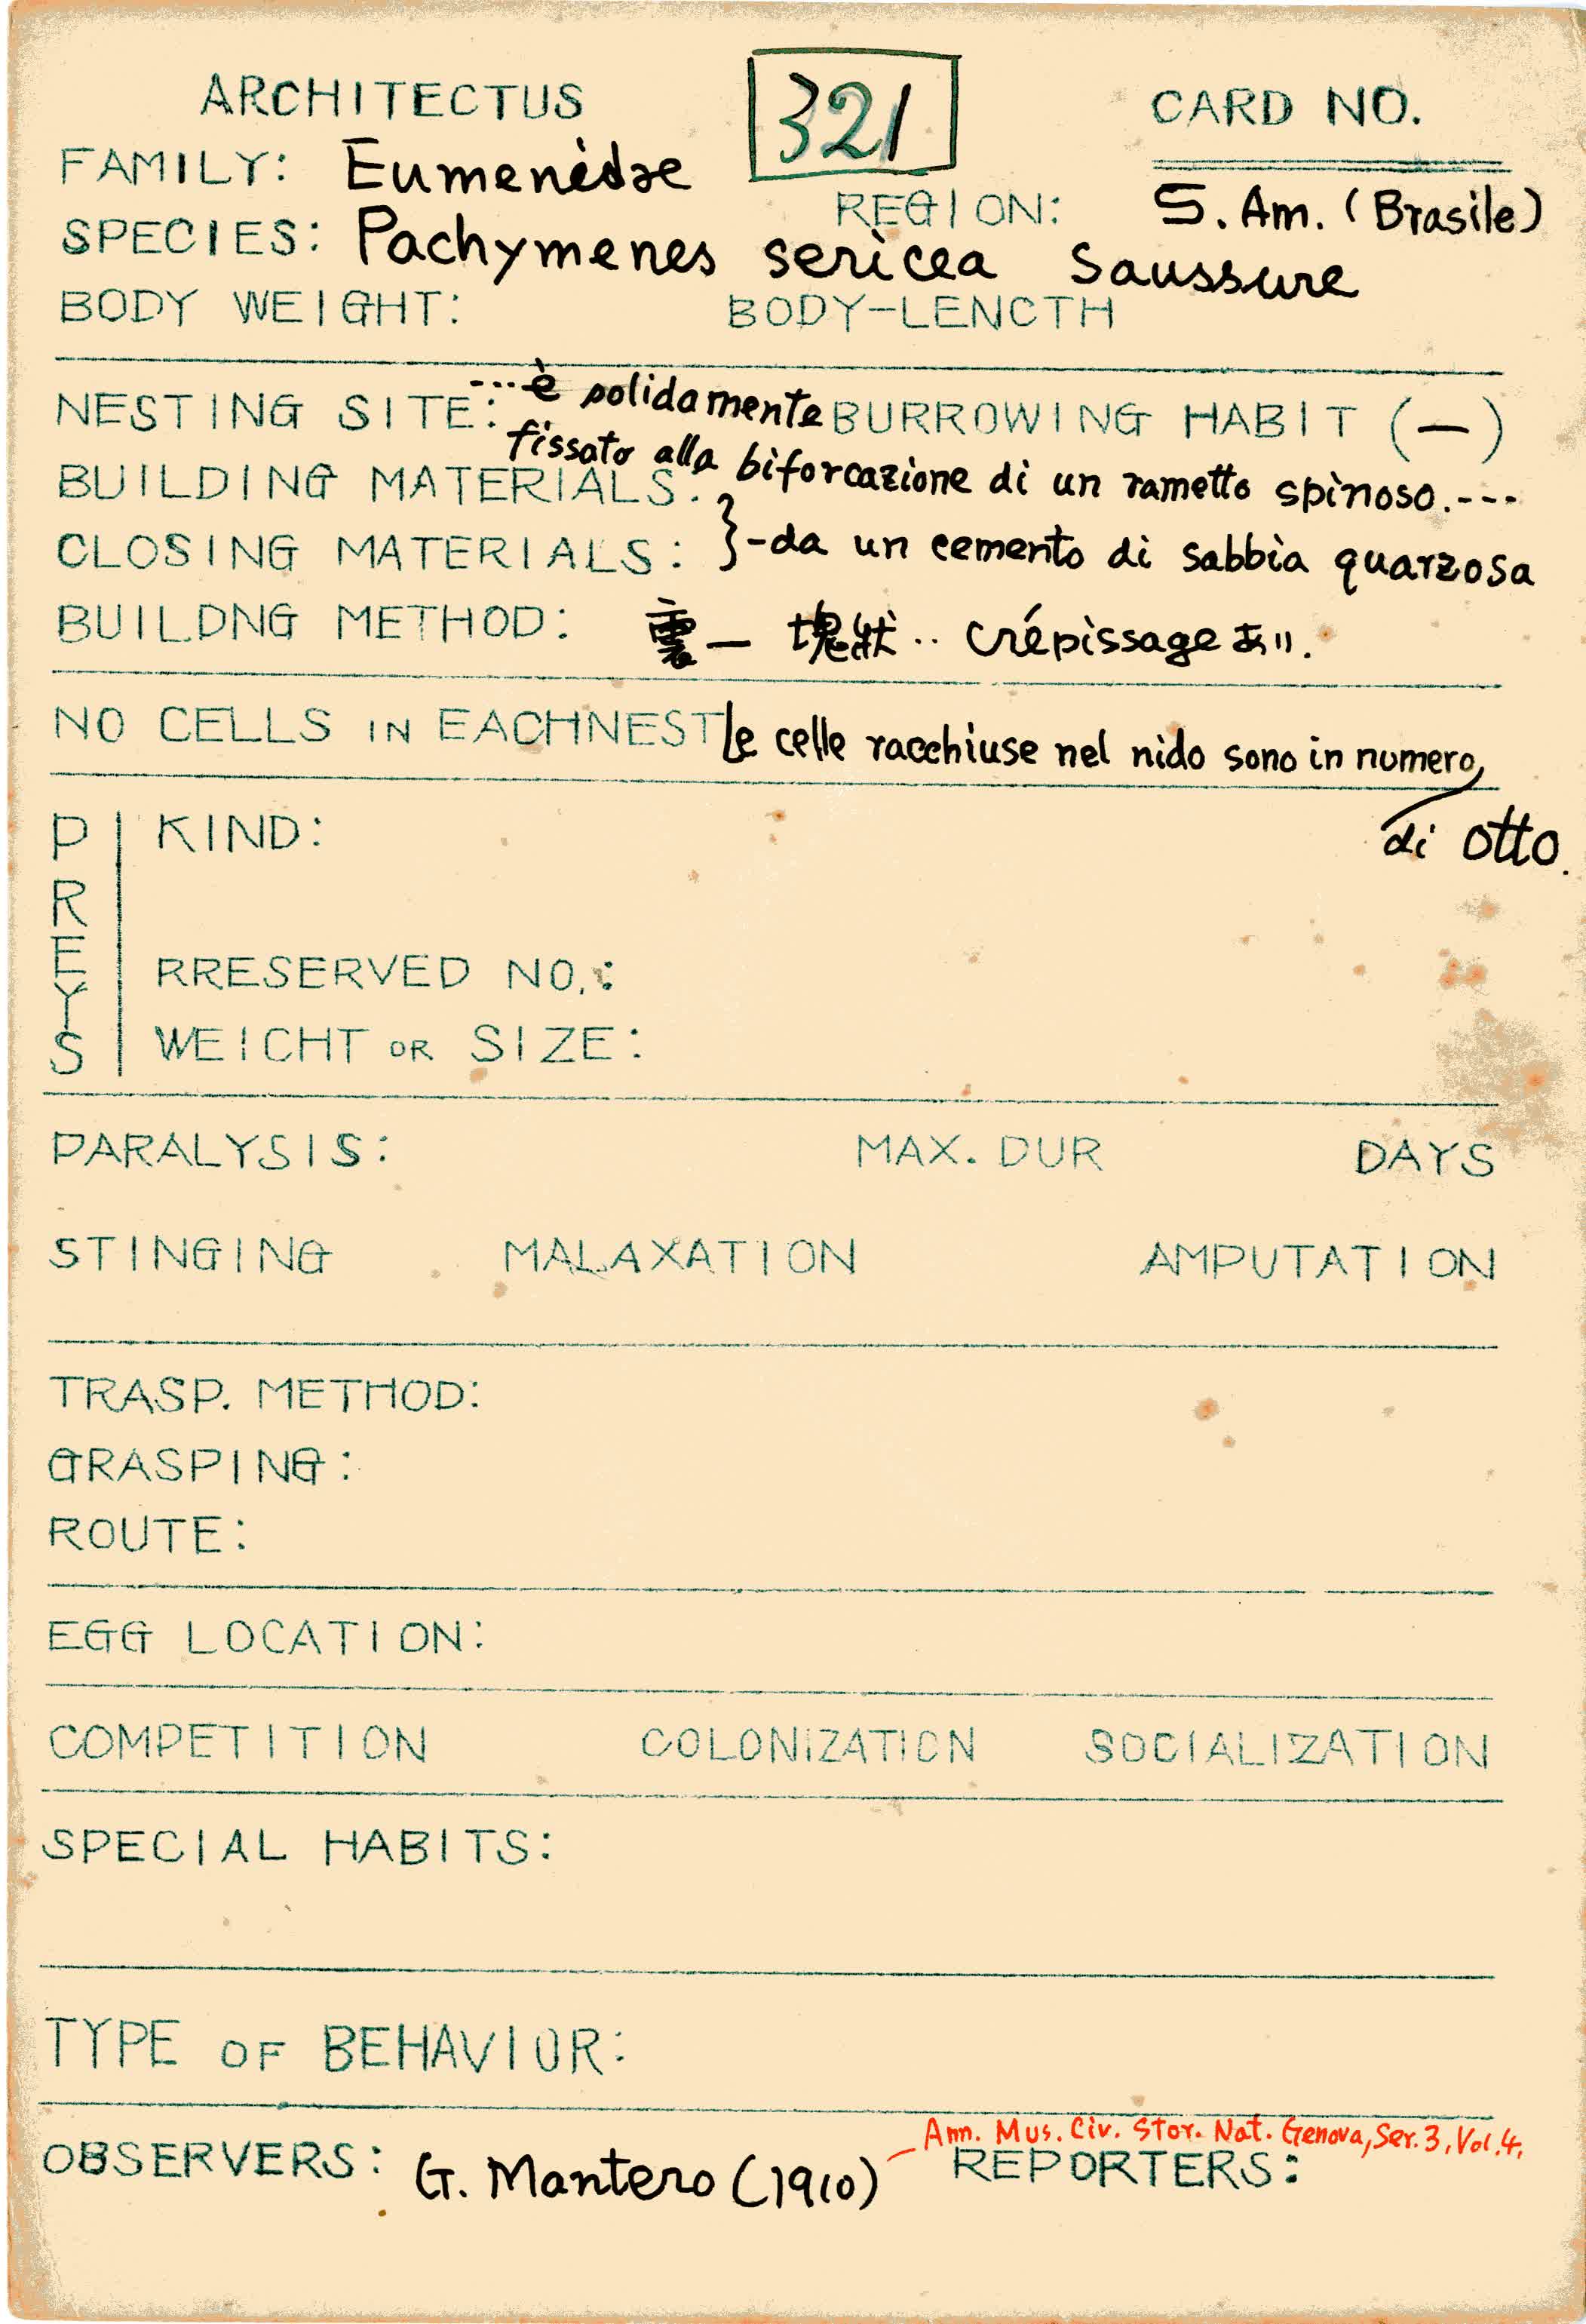 ARCHITECTUS 321 CARD NO.
FAMILY: Eumenidae
REGION: S. Am. (Brasile)
SPECIES: Pachymenes sericea Saussure
BODY WEIGHT: BODY-LENCTH
NESTING SITE: ---è solidamente BURROWING HABIT (—)
fissato alla biforcazione di un rametto spinoso.---
BUILDING MATERIALS:
CLOSING MATERIALS: }-da un cemento di sabbia quarzosa
BUILDNG METHOD: 裏— 塊状‥ crépissage あり.
NO CELLS IN EACHNEST le celle racchiuse nel nido sono in numero
di otto.
PREYS
KIND:
RRESERVED NO.:
WEICHT OR SIZE:
PARALYSIS: MAX. DUR DAYS
STINGING MALAXATION AMPUTATION
TRASP. METHOD:
GRASPING:
ROUTE:
EGG LOCATION:
COMPETITION COLONIZATION SOCIALIZATION
SPECIAL HABITS:
TYPE OF BEHAVIOR:
Ann. Mus. Civ. Stor. Nat. Genova, Ser. 3, Vol. 4.
OBSERVERS: G. Mantero (1910) REPORTERS: